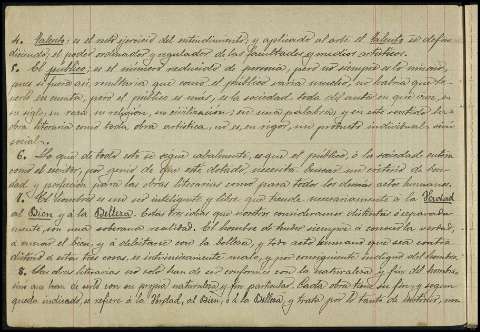 4. Talento: es el recto ejercicio del entendimiento, y aplicado al arte el talento se define
diciendo, el poder ordenador y regulador de las facultades y medios artísticos.
5. El público, es el número reducido de personas, pero no siempre es lo mismo,
pues si fuera así, resultaría que como el público varía mucho, no habría que te-
nerlo en cuenta, pero el público es más, es la sociedad toda del autor en que vive, es
su siglo, su raza, su religión, su civilización; en una palabra, y en este sentido la
obra literaria como toda obra artística, no es, en rigor, un producto individual, sino
social.
6. Lo que de todo esto se sigue cabalmente, es que el público, o la sociedad entera
como el escritor, por genio de que este dotado, necesita buscar un criterio de bon-
dad y perfección para las obras literarias como para todos los demás actos humanos.
7. El hombre es un ser inteligente y libre que tiende necesariamente a la Verdad
al Bien y a la Belleza. Estas tres ideas que nosotros consideramos distinta y separada-
mente, son una soberana realidad. El hombre ha de tender siempre a conocer la verdad,
a amar el bien, y a deleitarse con la belleza, y todo acto humano que sea contra-
dictorio a estas tres cosas, es intrínsecamente malo, y por consiguiente indigno del hombre.
8. Las obras literarias no solo han de ser conformes con la naturaleza y fin del hombre,
sino que han de serlo con su propia naturaleza y fin particular. Cada obra tiene su fin, y según
queda indicado, se refiere a la Verdad, al Bien, o a la Belleza, y trata por lo tanto de instruir,